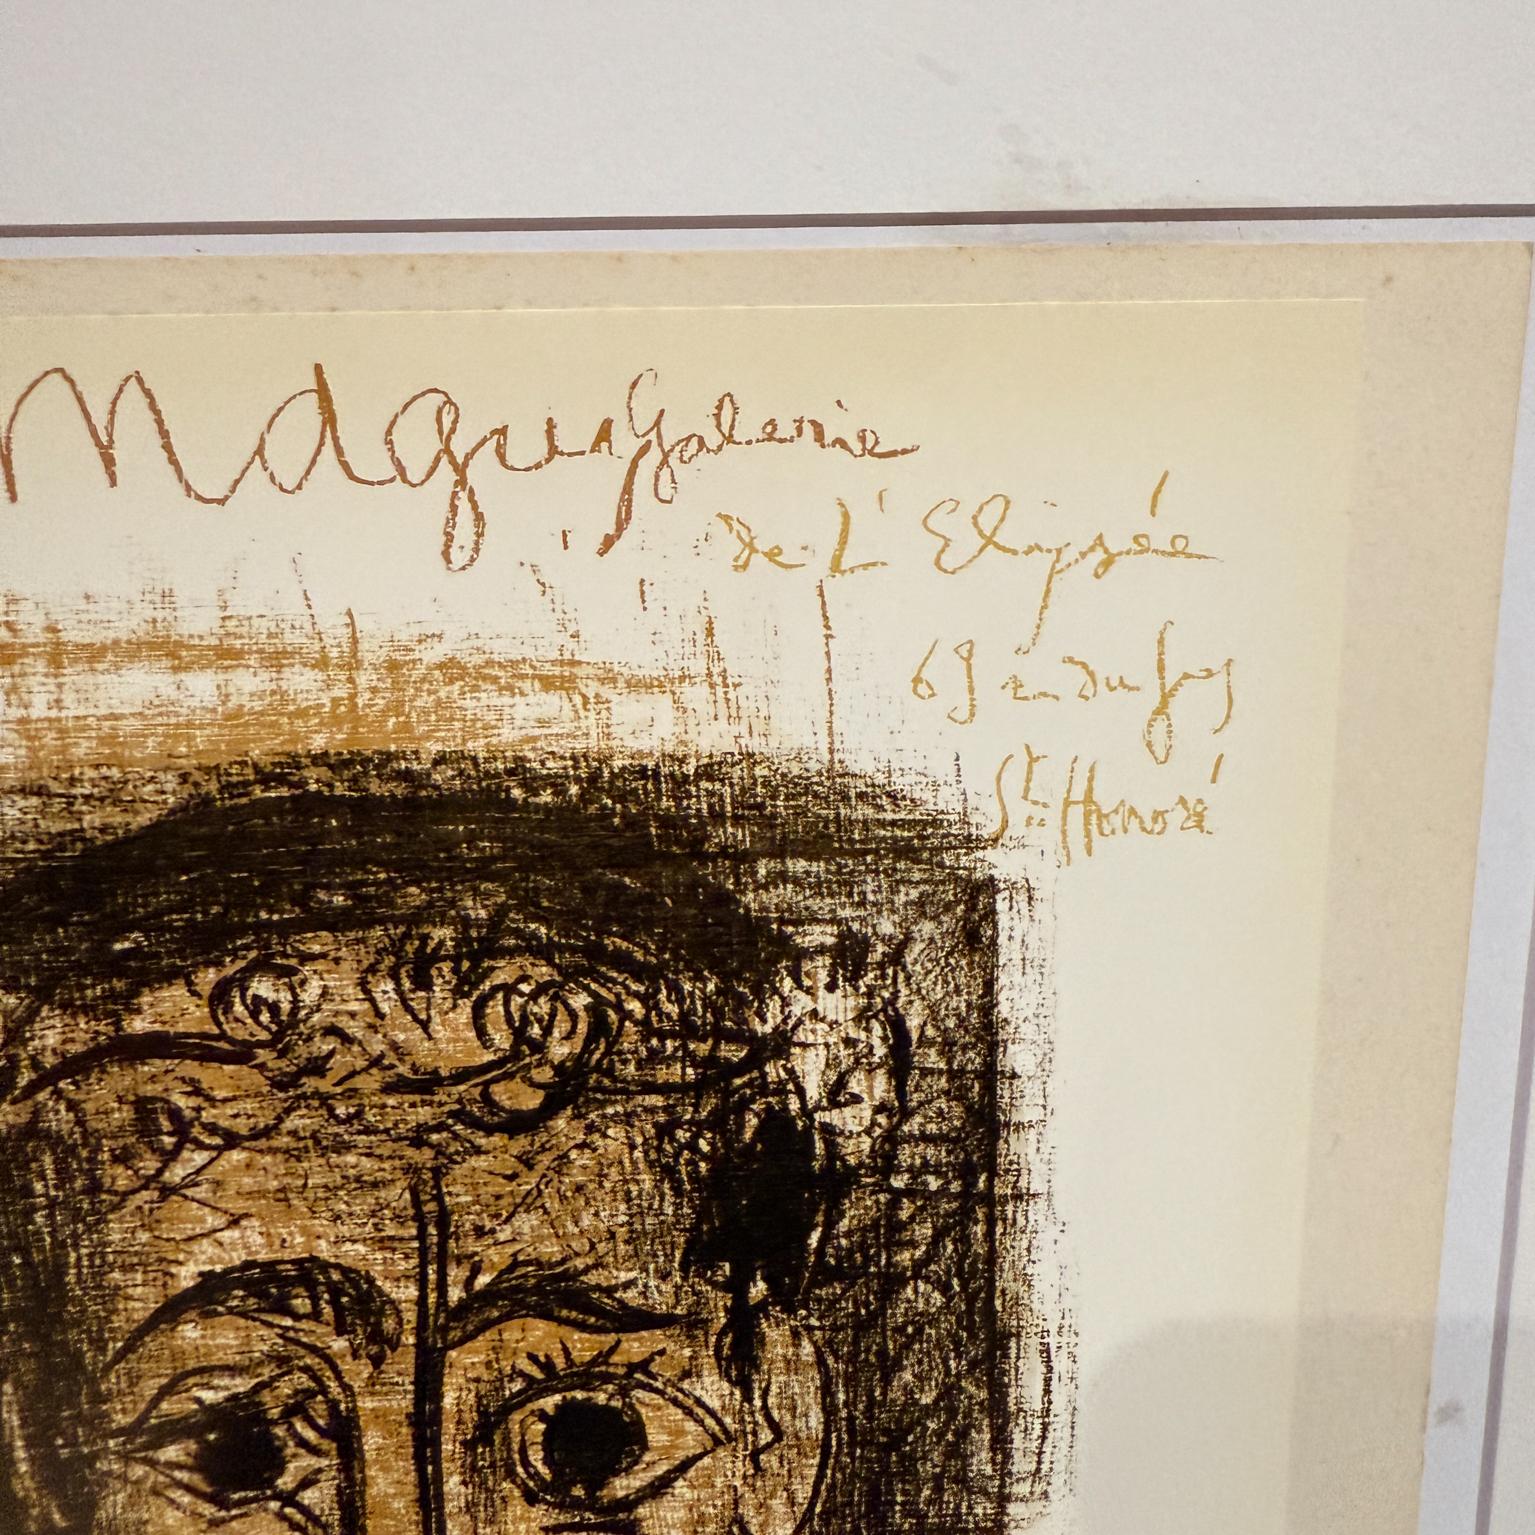 Maguy Galerie
de L'Elypsée
69 Rue du fbg
St Honoré